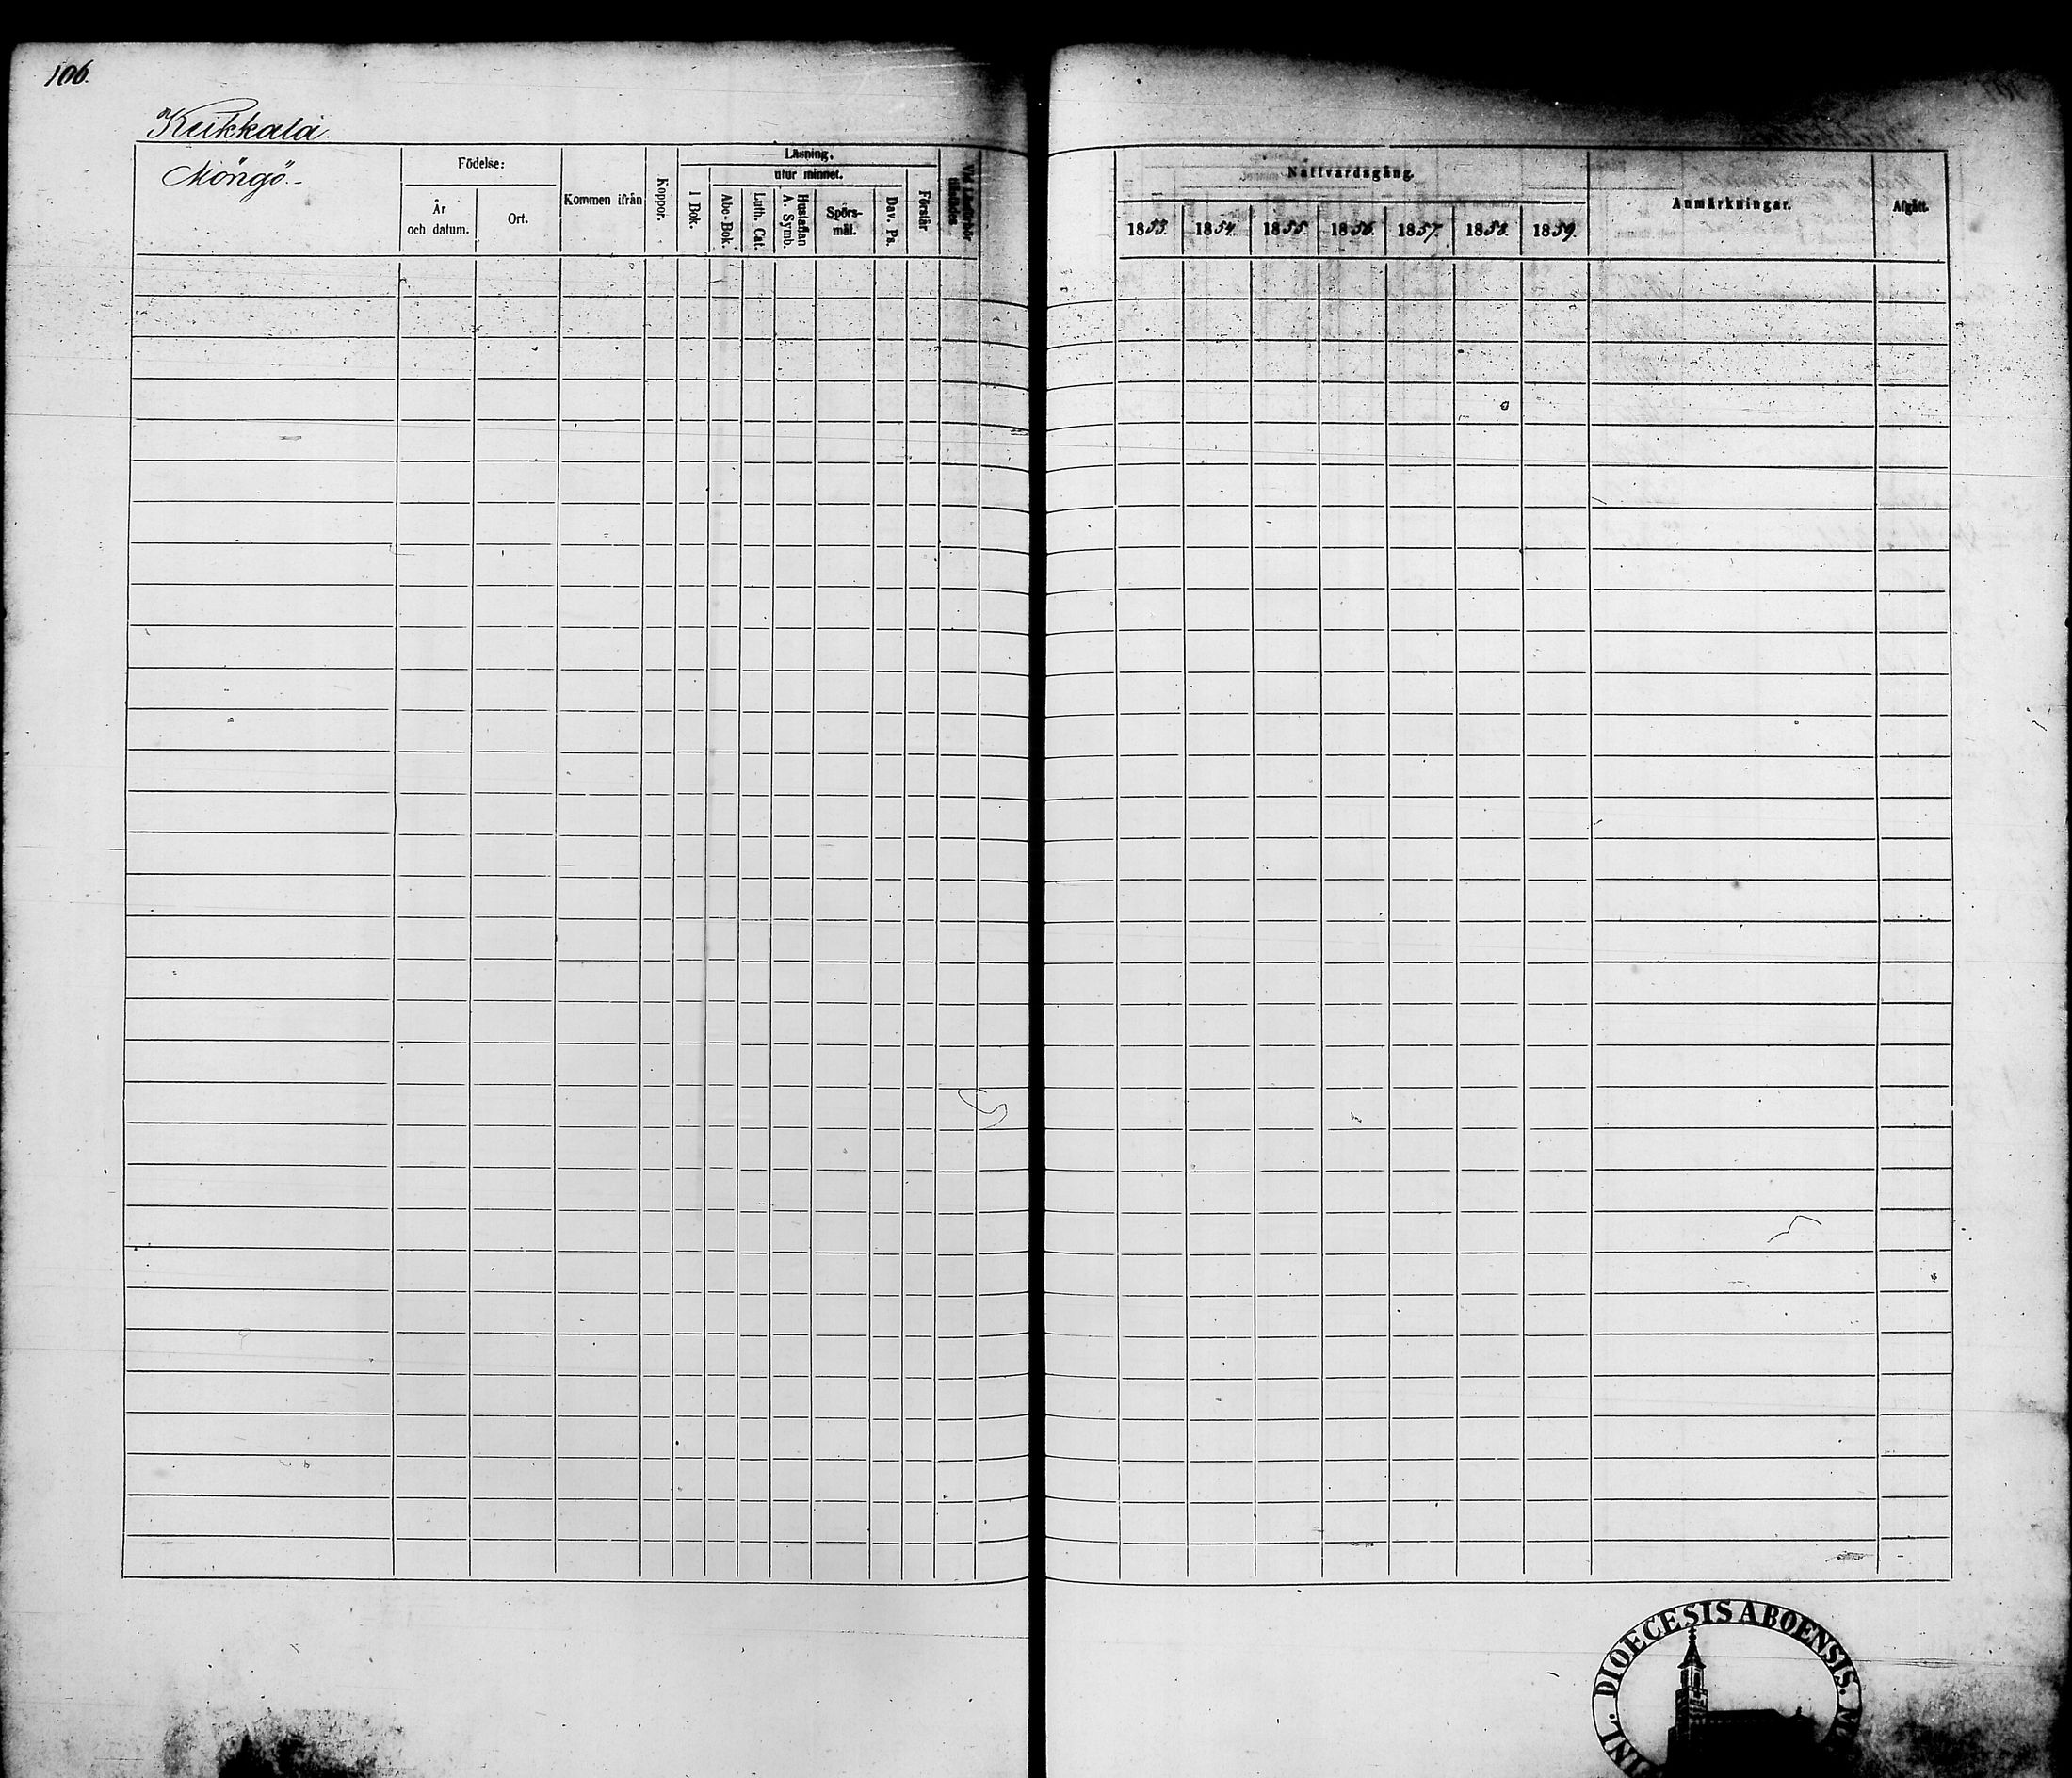 106.
Keikkala.
Möngö.-
Födelse:
År och datum.
Ort.
Kommen ifrån
Koppor.
Läsning.
utur minnet.
I Bok.
Abc-Bok.
Luth. Cat.
Hustaflan
A. Symb.
Spörs-
mål.
Dav. Ps.
Förstår
Nattvardsgång.
1853.
1854.
1855.
1856.
1857.
1858.
1859.
Anmärkningar.
Afgått.
DIOECESIS ABOENSIS. M